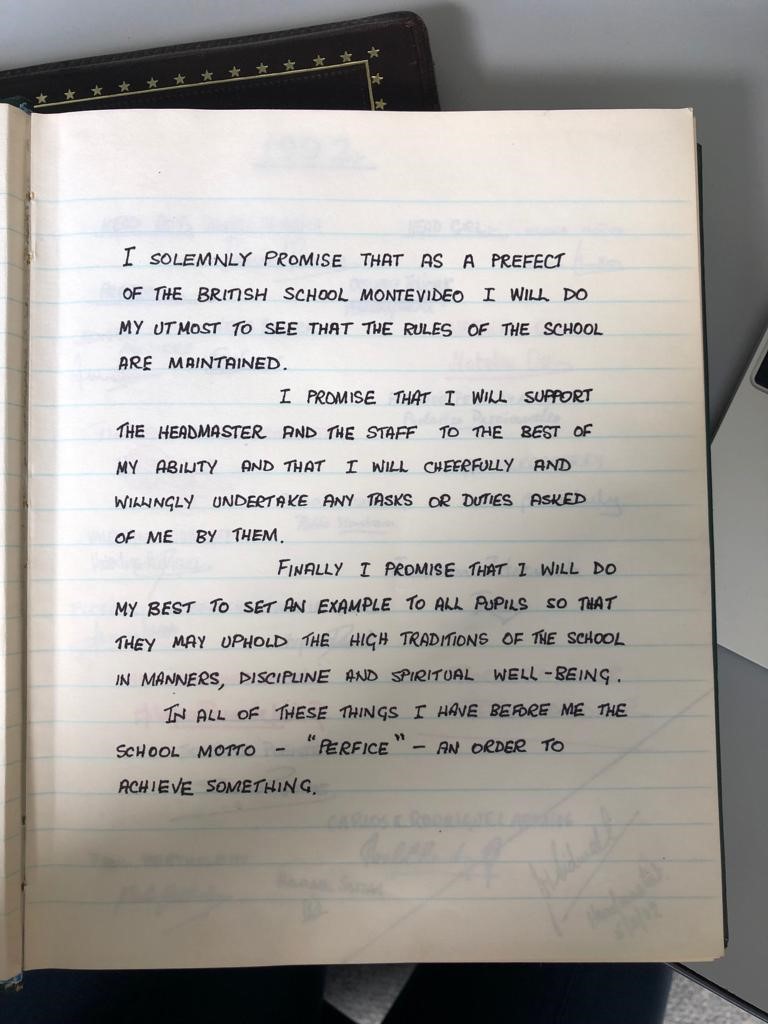 I SOLEMNLY PROMISE THAT AS A PREFECT
OF THE BRITISH SCHOOL MONTEVIDEO I WILL DO
MY UTMOST TO SEE THAT THE RULES OF THE SCHOOL
ARE MAINTAINED.
I PROMISE THAT I WILL SUPPORT
THE HEADMASTER AND THE STAFF TO THE BEST OF
MY ABILITY AND THAT I WILL CHEERFULLY AND
WILLINGLY UNDERTAKE ANY TASKS OR DUTIES ASKED
OF ME BY THEM.
FINALLY I PROMISE THAT I WILL DO
MY BEST TO SET AN EXAMPLE TO ALL PUPILS SO THAT
THEY MAY UPHOLD THE HIGH TRADITIONS OF THE SCHOOL
IN MANNERS, DISCIPLINE AND SPIRITUAL WELL-BEING.
IN ALL OF THESE THINGS I HAVE BEFORE ME THE
SCHOOL MOTTO - "PERFICE" - AN ORDER TO
ACHIEVE SOMETHING.